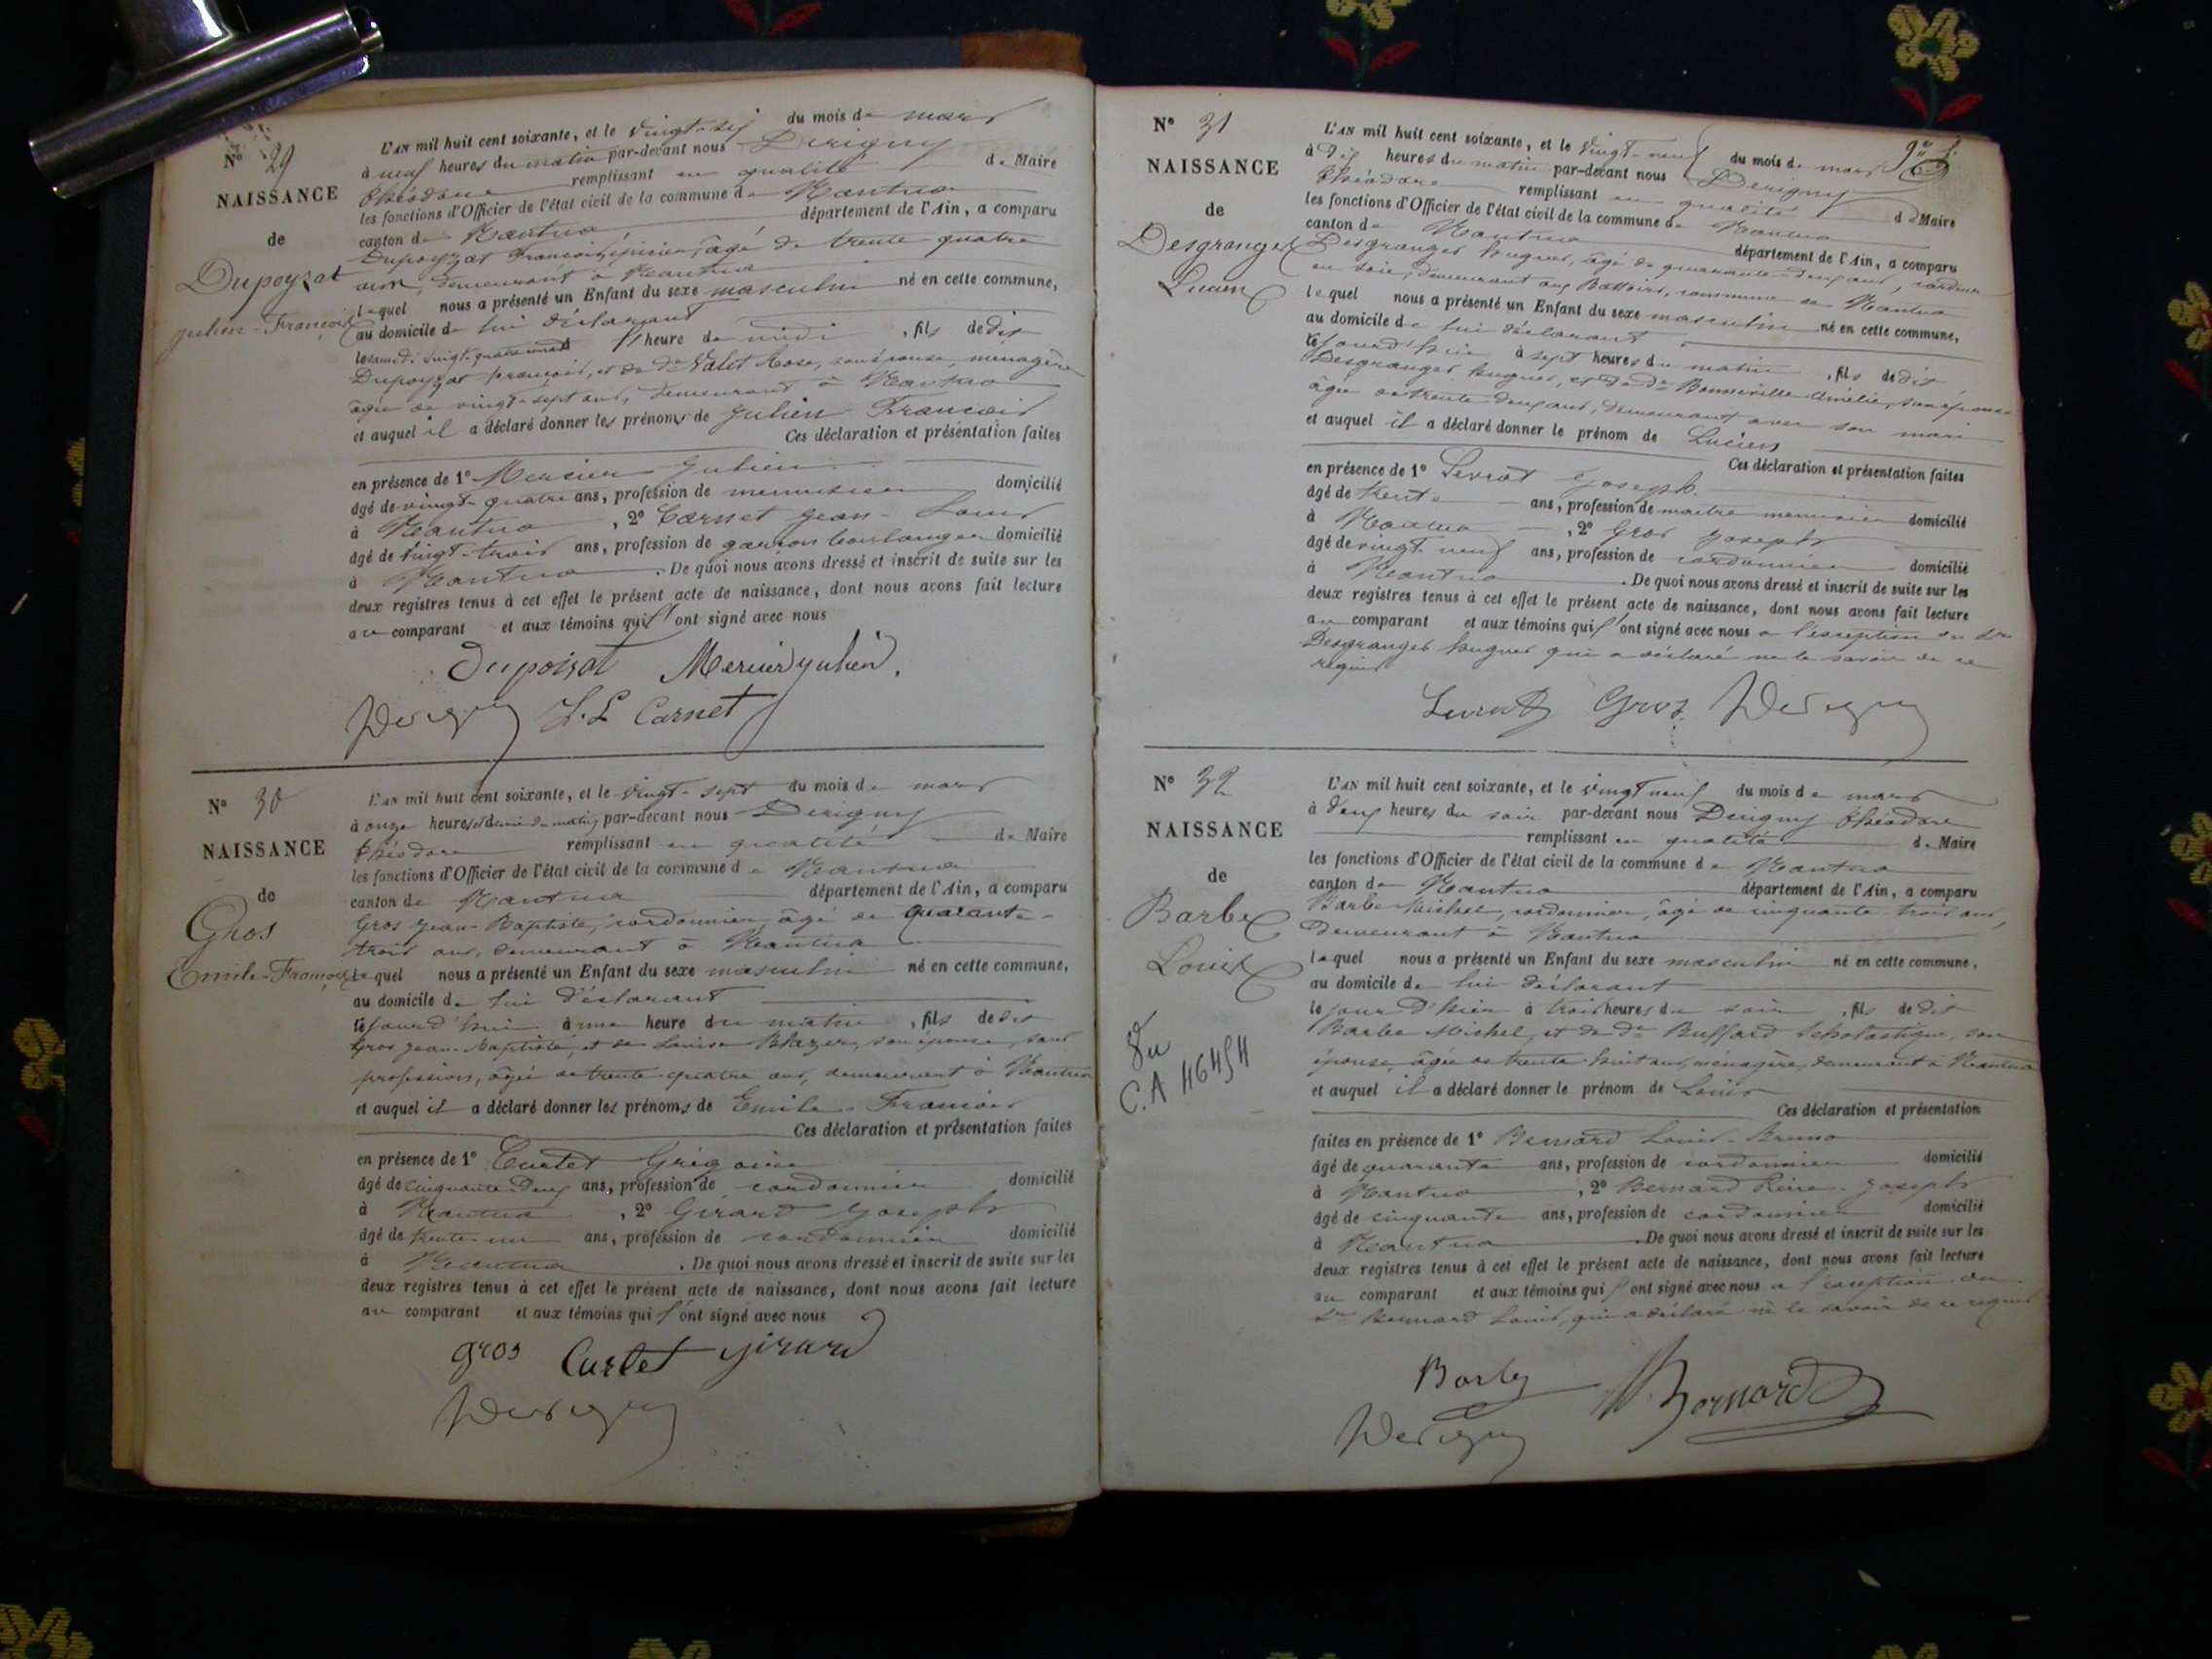 N° 29
NAISSANCE
de
Dupoyzat
Julien-François
L'AN mil huit cent soixante, et le vingt-six du mois de mars
à neuf heures du matin par-devant nous Derigny
Théodore remplissant en qualité de Maire
les fonctions d'Officier de l'état civil de la commune de Nantua
canton de Nantua département de l'Ain, a comparu
Dupoyzat François, épicier, âgé de trente quatre
ans, demeurant à Nantua
lequel nous a présenté un Enfant du sexe masculin né en cette commune,
au domicile de lui déclarant
le samedi vingt-quatre mars heure de midi, fils de dit
Dupoyzat François, et de de Nalet Rose, son épouse, ménagère
âgée de vingt-sept ans, demeurant à Nantua
et auquel il a déclaré donner les prénoms de Julien François
Ces déclaration et présentation faites
en présence de 1° Mercier Julien
âgé de vingt-quatre ans, profession de menuisier domicilié
à Nantua, 2° Carnet Jean-Louis
âgé de vingt-trois ans, profession de garçon boulanger domicilié
à Nantua. De quoi nous avons dressé et inscrit de suite sur les
deux registres tenus à cet effet le présent acte de naissance, dont nous avons fait lecture
au comparant et aux témoins qui l'ont signé avec nous
Dupoizat Mercier Julien.
Derigny J. L. Carnet
N° 30
NAISSANCE
de
Gros
Emile-François
L'AN mil huit cent soixante, et le vingt-sept du mois de mars
à onze heures et demie du matin par-devant nous Derigny
Théodore remplissant en qualité de Maire
les fonctions d'Officier de l'état civil de la commune de Nantua
canton de Nantua département de l'Ain, a comparu
Gros Jean-Baptiste, cordonnier, âgé de quarante-
trois ans, demeurant à Nantua
lequel nous a présenté un Enfant du sexe masculin né en cette commune,
au domicile de lui déclarant
le jourd'hui à une heure du matin, fils de dit
Gros Jean-Baptiste, et de Louise Blazer, son épouse, sans
profession, âgée de trente-quatre ans, demeurant à Nantua
et auquel il a déclaré donner les prénoms de Emile-François
Ces déclaration et présentation faites
en présence de 1° Curtet Grégoire
âgé de cinquante-deux ans, profession de cordonnier domicilié
à Nantua, 2° Girard Joseph
âgé de trente-un ans, profession de cordonnier domicilié
à Nantua. De quoi nous avons dressé et inscrit de suite sur les
deux registres tenus à cet effet le présent acte de naissance, dont nous avons fait lecture
au comparant et aux témoins qui l'ont signé avec nous
Gros Curtet Girard
Derigny
N° 31
NAISSANCE
de
Desgranges
Lucien
L'AN mil huit cent soixante, et le vingt-neuf du mois de mars
à dix heures du matin par-devant nous Derigny
Théodore remplissant en qualité de Maire
les fonctions d'Officier de l'état civil de la commune de Nantua
canton de Nantua département de l'Ain, a comparu
Desgranges Hugues, âgé de quarante-deux ans, cardeur
en soie, demeurant aux Battoirs, commune de Nantua
lequel nous a présenté un Enfant du sexe masculin né en cette commune,
au domicile de lui déclarant
le jourd'hui à sept heures du matin, fils de dit
Desgranges Hugues, et de de Bonneville Amélie, son épouse
âgée de trente deux ans, demeurant avec son mari
et auquel il a déclaré donner le prénom de Lucien
Ces déclaration et présentation faites
en présence de 1° Levrat Joseph
âgé de trente ans, profession de maître menuisier domicilié
à Nantua, 2° Gros Joseph
âgé de vingt neuf ans, profession de cordonnier domicilié
à Nantua. De quoi nous avons dressé et inscrit de suite sur les
deux registres tenus à cet effet le présent acte de naissance, dont nous avons fait lecture
au comparant et aux témoins qui l'ont signé avec nous à l'exception du Sr
Desgranges Hugues qui a déclaré ne le savoir de ce
requis
Levrat Gros Derigny
N° 32
NAISSANCE
de
Barbe
Louis
Du
C.A 46454
L'AN mil huit cent soixante, et le vingt neuf du mois de mars
à deux heures du soir par-devant nous Derigny Théodore
remplissant en qualité de Maire
les fonctions d'Officier de l'état civil de la commune de Nantua
canton de Nantua département de l'Ain, a comparu
Barbe Michel, cordonnier, âgé de cinquante-trois ans,
demeurant à Nantua
lequel nous a présenté un Enfant du sexe masculin né en cette commune,
au domicile de lui déclarant
le jour d'hier à trois heures du soir, fils de dit
Barbe Michel, et de de Buffard Scholastique, son
épouse, âgée de trente-huit ans, ménagère, demeurant à Nantua
et auquel il a déclaré donner le prénom de Louis
Ces déclaration et présentation
faites en présence de 1° Bernard Louis-Bruno
âgé de quarante ans, profession de cordonnier domicilié
à Nantua, 2° Bernard Joseph
âgé de cinquante ans, profession de cordonnier domicilié
à Nantua. De quoi nous avons dressé et inscrit de suite sur les
deux registres tenus à cet effet le présent acte de naissance, dont nous avons fait lecture
au comparant et aux témoins qui l'ont signé avec nous à l'exception du
Sr Bernard Louis, qui a déclaré ne le savoir de ce requis
Barbe Bernard
Derigny